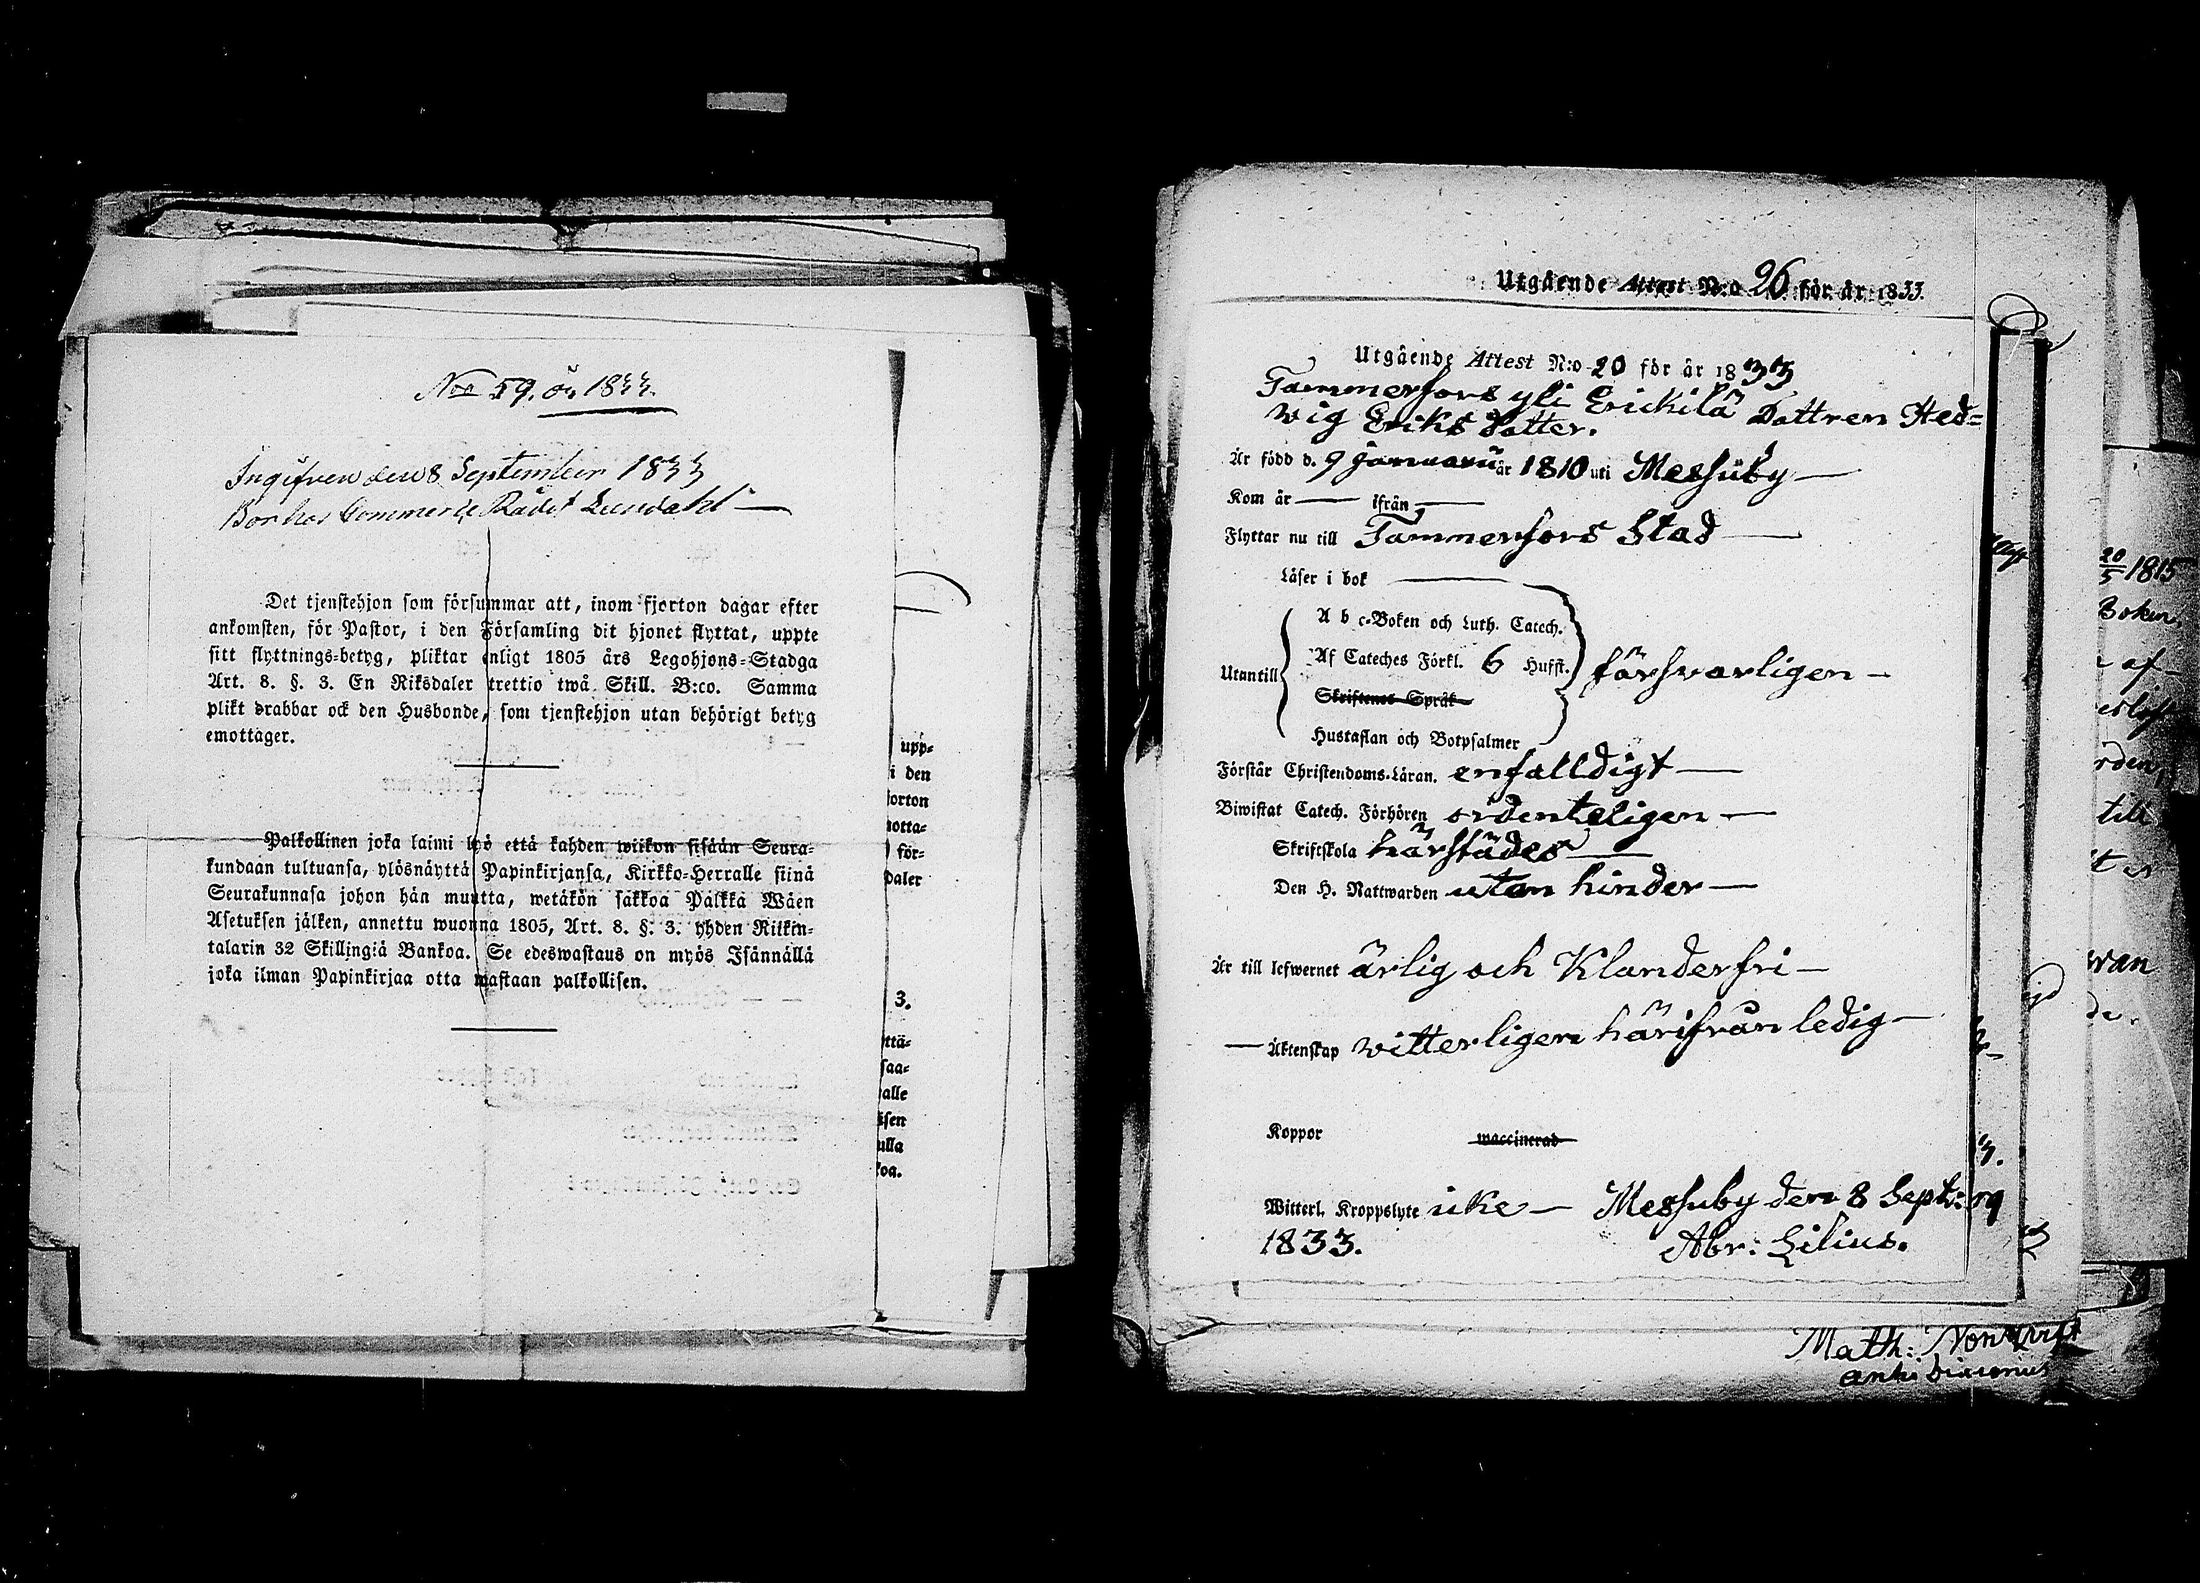 No 59. år 1833.
Ingifven den 8 September 1833
Bor hos Commerce Rådet Lundahl —
Det tjenstehjon som försummar att, inom fjorton dagar efter
ankomsten, för Pastor, i den Församling dit hjonet flyttat, uppte
sitt flyttnings-betyg, pliktar enligt 1805 års Legohjons-Stadga
Art. 8. §. 3. En Riksdaler trettio twå Skill. B:co. Samma
plikt drabbar ock den Husbonde, som tjenstehjon utan behörigt betyg
emottager.
Palkollinen joka laimi lyö että kahden wiikon sisään Seura-
kundaan tultuansa, ylösnäyttä Papinkirjansa, Kirkko-Herralle siinä
Seurakunnasa johon hän muutta, wetäkön sakkoa Palkka Wäen
Asetuksen jälken, annettu wuonna 1805, Art. 8. §. 3. yhden Riikin-
talarin 32 Skillingiä Bankoa. Se edeswastaus on myös Isännällä
joka ilman Papinkirjaa otta wastaan palkollisen.
upp-
i den
jorton
notta-
för-
daler
3.
ttä-
saa-
alle
isen
ulla
koa.
Utgående Attest N:o 26 för år 1833.
Utgående Attest N:o 20 för år 1833
Tammerfors yli Erickilä Dottren Hed=
wig Eriks dotter.
Är född d. 9 Januarii år 1810 uti Messuby —
Kom år — ifrån —
Flyttar nu till Tammerfors Stad —
Läser i bok —
A b c-Boken och Luth. Catech.
Utantill Af Cateches Förkl. 6 Hufst. försvarligen —
Skriftenes Språk
Hustaflan och Botpsalmer
Förstår Christendoms-Läran. enfalldigt —
Biwistat Catech. Förhören ordenteligen —
Skriftskola härstädes —
Den H. Nattwarden utan hinder —
Är till lefwernet ärlig och Klanderfri —
— Äktenskap witterligen härifrån ledig —
Koppor waccinerad
Witterl. Kroppslyte icke — Messuby den 8 Sept:
1833. Abr: Lilius.
Math:
20/5 1815
Boken.
af-
rden,
till
wan
de.